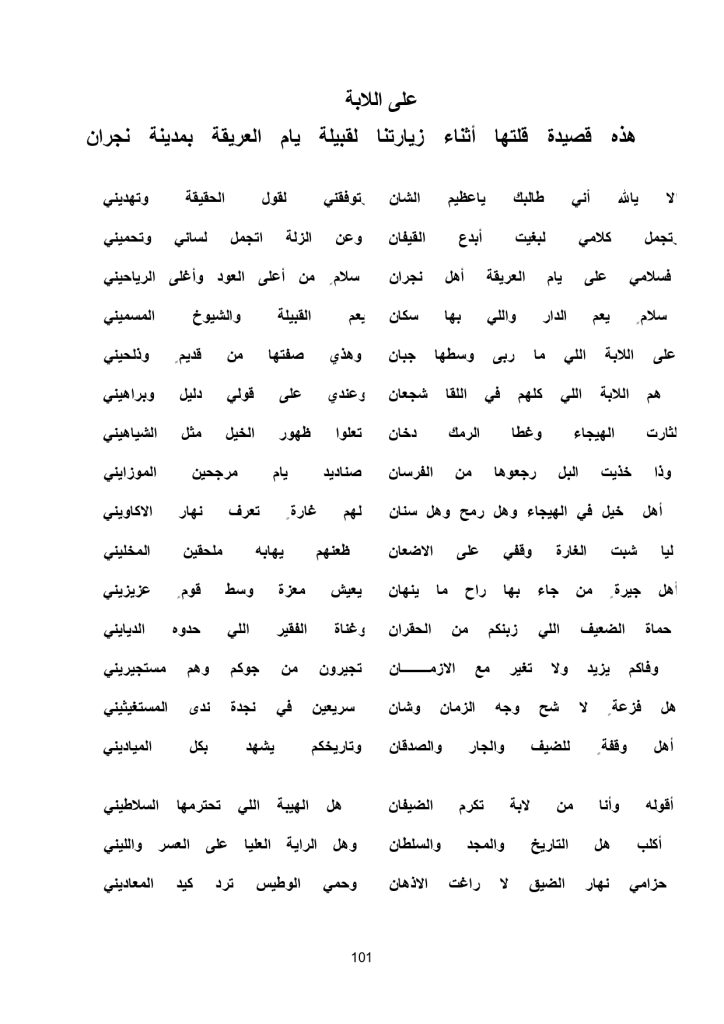 على اللابة
هذه قصيدة قلتها أثناء زيارتنا لقبيلة يام العريقة بمدينة نجران
الا يالله أني طالبك ياعظيم الشان توفقني لقول الحقيقة وتهديني
تجمل كلامي لبغيت أبدع القيفان وعن الزلة اتجمل لساني وتحميني
فسلامي على يام العريقة أهل نجران سلامٍ من أعلى العود وأغلى الرياحيني
سلامٍ يعم الدار واللي بها سكان يعم القبيلة والشيوخ المسميني
على اللابة اللي ما ربى وسطها جبان وهذي صفتها من قديمٍ وذلحيني
هم اللابة اللي كلهم في اللقا شجعان وعندي على قولي دليل وبراهيني
لثارت الهيجاء وغطا الرمك دخان تعلوا ظهور الخيل مثل الشياهيني
وذا خذيت البل رجعوها من الفرسان صناديد يام مرجحين الموزايني
أهل خيل في الهيجاء وهل رمح وهل سنان لهم غارةٍ تعرف نهار الاكاويني
ليا شبت الغارة وقفي على الاضعان ظعنهم يهابه ملحقين المخليني
أهل جيرةٍ من جاء بها راح ما ينهان يعيش معزة وسط قومٍ عزيزيني
حماة الضعيف اللي زبنكم من الحقران وغناة الفقير اللي حدوه الديايني
وفاكم يزيد ولا تغير مع الازمـــــان تجيرون من جوكم وهم مستجيريني
هل فزعةٍ لا شح وجه الزمان وشان سريعين في نجدة ندى المستغيثيني
أهل وقفةٍ للضيف والجار والصدقان وتاريخكم يشهد بكل المياديني
أقوله وأنا من لابة تكرم الضيفان هل الهيبة اللي تحترمها السلاطيني
أكلب هل التاريخ والمجد والسلطان وهل الراية العليا على العسر والليني
حزامي نهار الضيق لا راغت الاذهان وحمي الوطيس ترد كيد المعاديني
101